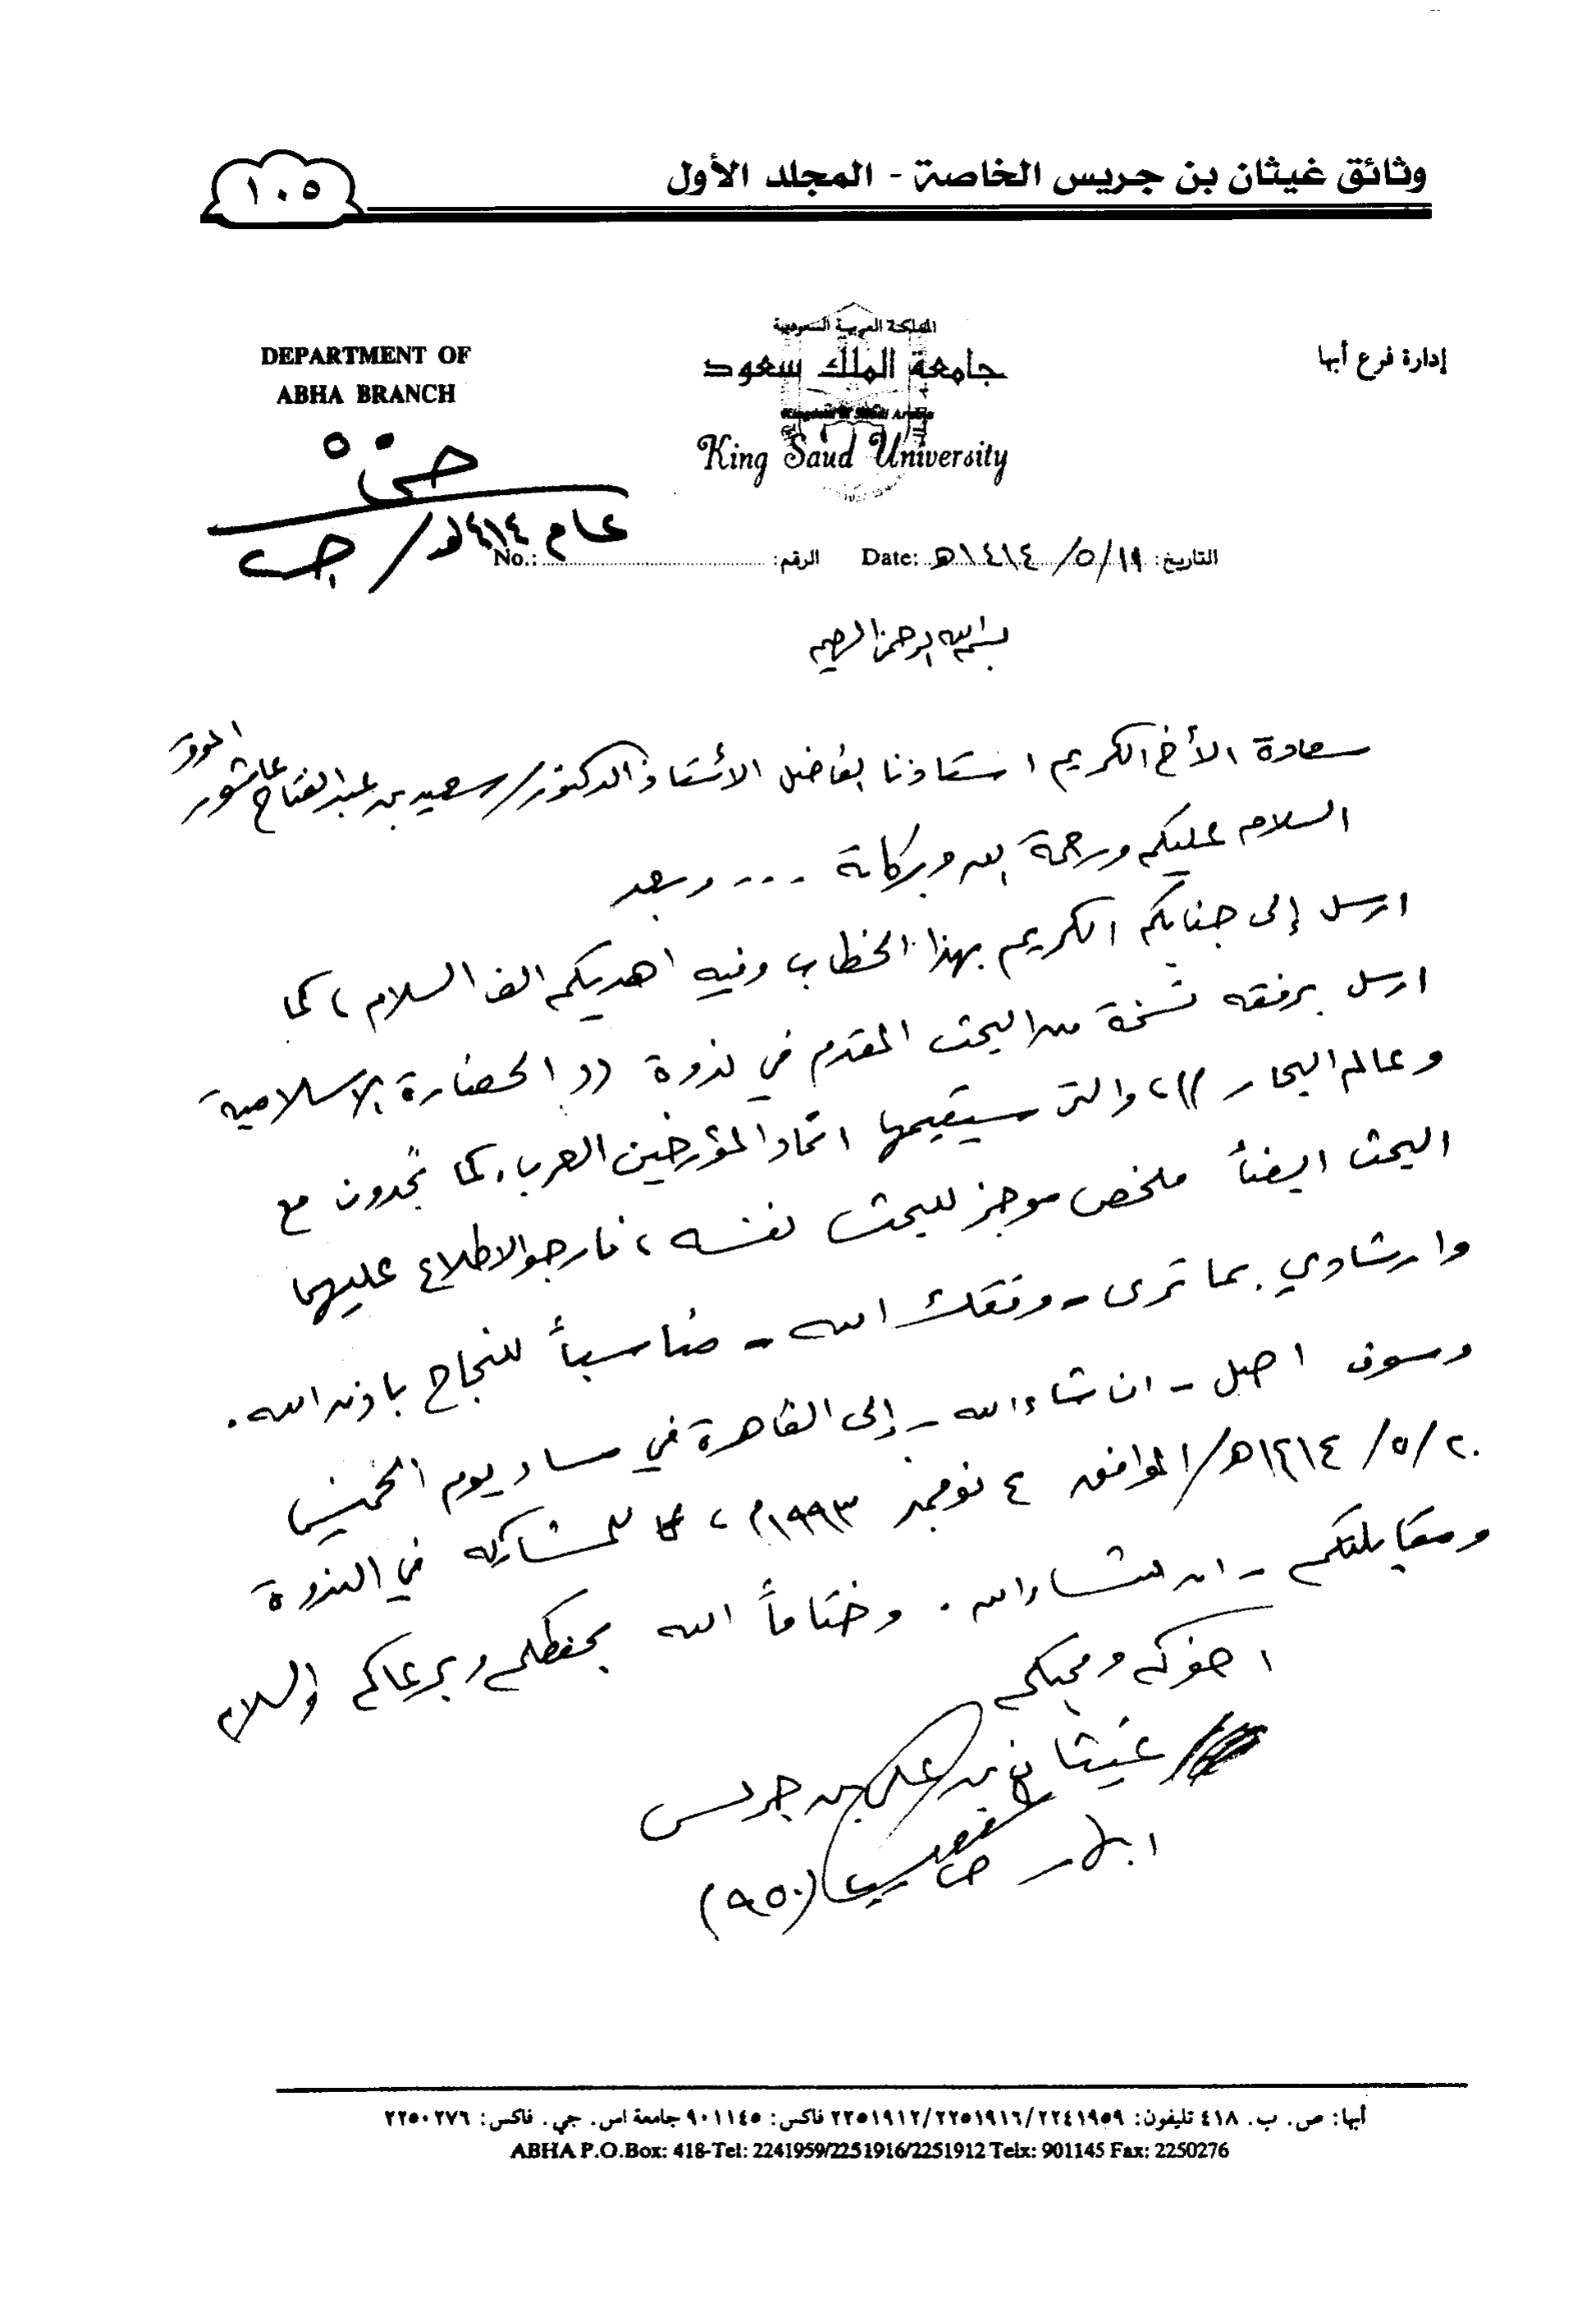 وثائق غيثان بن جريس الخاصة - المجلد الأول
١٠٥
إدارة فرع أبها
المملكة العربية السعودية
جامعة الملك سعود
Kingdom of Saudi Arabia
King Saud University
DEPARTMENT OF
ABHA BRANCH
عام ١٤١٤هـ /
التاريخ: ١٩/ ٥/ ١٤١٤هـ Date: الرقم: No.:
بسم الله الرحمن الرحيم
سعادة الأخ الكريم استاذنا الفاضل الأستاذ الدكتور/ سعيد بن عبدالفتاح عاشور الموقر
السلام عليكم ورحمة الله وبركاتة ... وبعد
ارسل إلى جنابكم الكريم بهذا الخطاب وفيه اهديكم الف السلام، كما
ارسل برفقه نسخة من البحث المقدم في ندوة (( الحضارة الإسلامية
وعالم البحار ))، والتي سيقيمها اتحاد المؤرخين العرب، كما تجدون مع
البحث ايضاً ملخص موجز للبحث نفسه، فارجو الاطلاع عليهما
وارشادي بما ترى - وفقك الله - مناسباً للنجاح باذن الله.
وسوف اصل - ان شاء الله - إلى القاهرة في مساء يوم الخميس
٢٠/ ٥/ ١٤١٤هـ/ الموافق ٤ نوفمبر ١٩٩٣م، للمشاركه في الندوة
ومقابلتكم - ان شاء الله. وختاماً الله يحفظكم ويرعاكم والسلام
اخوكم ومحبكم
غيثان بن علي بن جريس
ابها - ص ب (٩٥٠)
أبها: ص. ب. ٤١٨ تليفون: ٢٢٤١٩٥٩/ ٢٢٥١٩١٦/ ٢٢٥١٩١٢ فاكس: ٩٠١١٤٥ جامعة اس. جي. فاكس: ٢٢٥٠٢٧٦
ABHA P.O.Box: 418-Tel: 2241959/2251916/2251912 Telx: 901145 Fax: 2250276